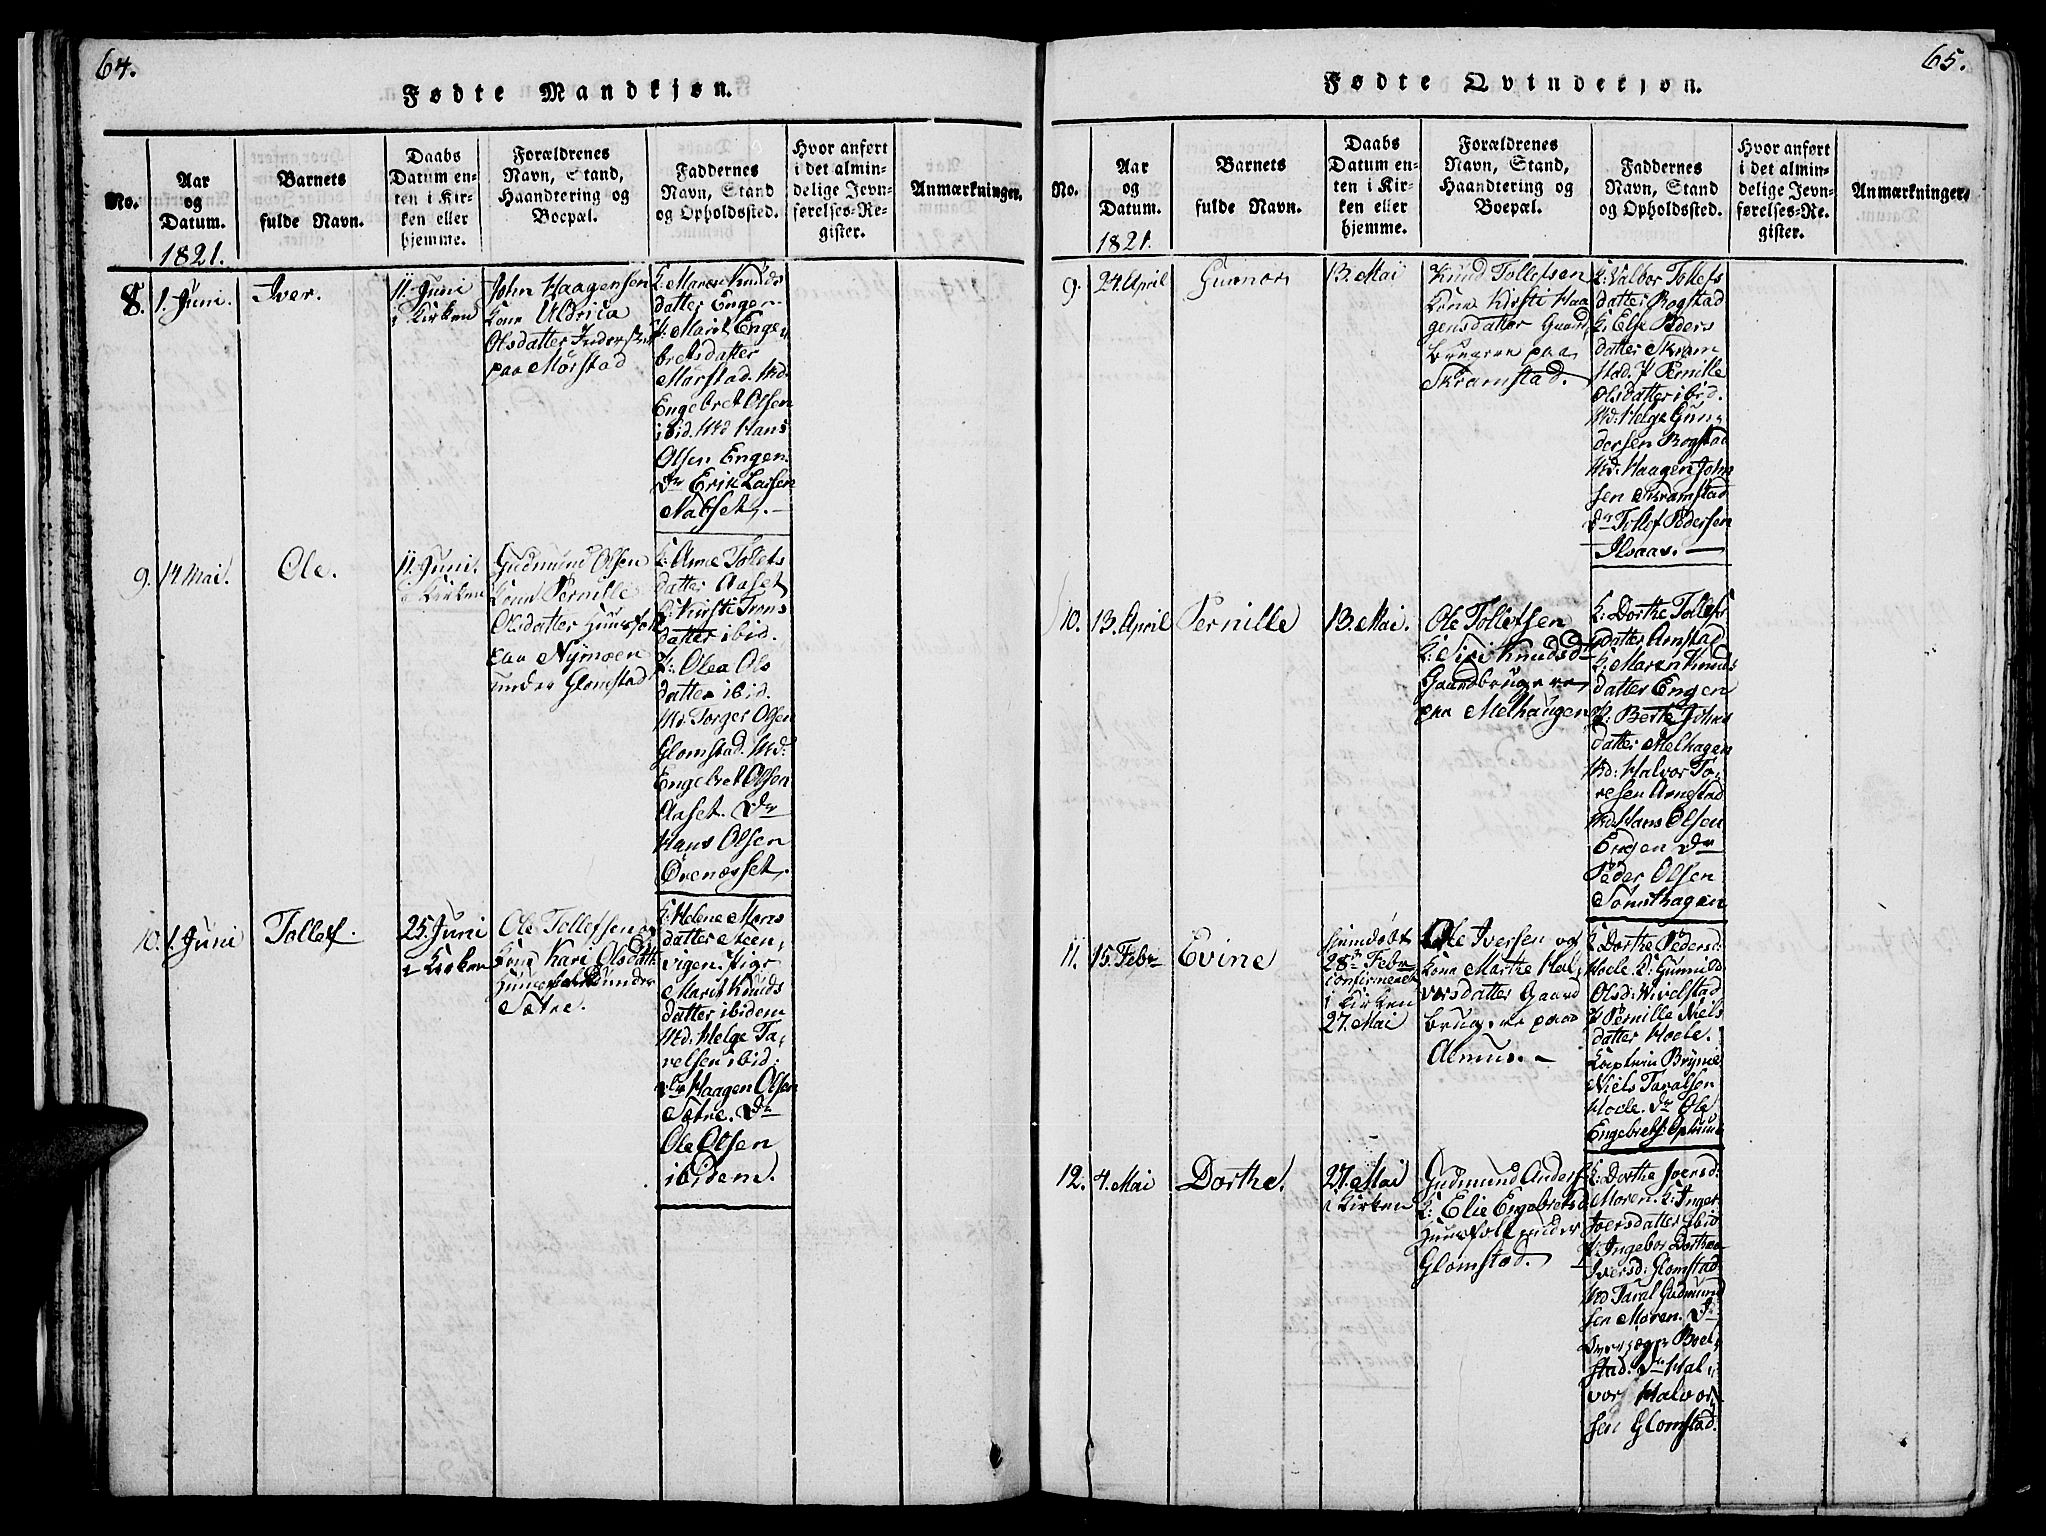 64.
Fødte Mandkjøn.
No.
Aar
og
Datum.
1821.
Barnets
fulde Navn.
Daabs
Datum en-
ten i Kir-
ken eller
hjemme.
Forældrenes
Navn, Stand,
Haandtering og
Boepæl.
Faddernes
Navn, Stand
og Opholdssted.
Hvor anført
i det almin-
delige Jevn-
førelses-Re-
gister.
Anmærkninger.
8.
1. Juni.
Iver.
11. Juni
i Kirken
John Haagensen
Kone Uldrica
Olsdatter Inderster
paa Mørstad
K: Maren Knuds
datter Engen
P: Marit Enge
bretsdatter
Mørstad. Md.
Engebret Olsen
ibid. Md Hans
Olsen Engen.
Dr Erik Larsen
Nabset. —
9.
14. Mai.
Ole.
11. Juni.
i Kirken
Gudmund Olsen
Kone Pernille
Olsdatter Huusfolk
paa Nymoen
under Glomstad
K: Anne Tollefs
datter Aaset
K: Kirsti Trons
datter ibid.
P: Olea Ols
datter ibid.
Md. Torger Olsen
Glomstad. Md:
Engebret Olsen
Aaset. Dr
Hans Olsen
Ovenæsset.
10.
1. Juni
Tollef.
25. Juni
i Kirken
Ole Tollefsen og
Kone Kari Olsdatt
Huusfolk under
Sætre.
K: Helene Mons
datter Steen
vigen. Pige
Marit Knuds
datter ibidem
Md: Helge Ta
relsen ibid:
Dr Haagen Olsen
Sætre. Dr
Ole Olsen
ibidem.
65.
Fødte Qvindekjøn.
No.
Aar
og
Datum.
1821.
Barnets
fulde Navn.
Daabs
Datum en-
ten i Kir-
ken eller
hjemme.
Forældrenes
Navn, Stand,
Haandtering og
Boepæl.
Faddernes
Navn, Stand
og Opholdssted.
Hvor anført
i det almin-
delige Jevn-
førelses-Re-
gister.
Anmærkninger.
9.
24. April
Gunnor
13. Mai
Knud Tollefsen
Kone Kirsti Haa
gensdatter Gaard
brugere paa
Skramstad.
K: Valbor Tollefs
datter Rogstad
K: Else Peders
datter Skram
stad. P Pernille
Olsdatter ibid.
Md: Helge Gun
dersen Rogstad
Md: Haagen John
sen Skramstad
Dr Tollef Pedersen
Ilsaas. —
10.
13. April
Pernille
13. Mai.
Ole Tollefsen
K: Siri Knudsd
Gaardbrugere
paa Melhaugen
K: Dorthe Tollefs
datter Arnstad
K: Maren Knuds
datter Engen
P: Berte Johns
datter Melhagen
Md: Halvor To
resen Arnestad
Md: Hans Olsen
Engen Dr
Peder Olsen
Tømthagen
11.
15. Febr
Evine
hjemdøbt
28de Febr
confirmeret
i Kirken
27. Mai
Ole Iversen og
Kone Marthe Hal
vorsdatter Gaard
brugere paa
Almus. —
K: Dorthe Pedersd:
Hoele. K: Gunnild
Olsd: Wivelstad
P Pernille Niels
datter Hoele.
Niels Taralsen
Hoele. Dr Ole
Engebrets: Ophuus
12.
4. Mai
Dorthe.
27. Mai
i Kirken
Gudmund Anders
K: Elie Engebretsd
Huusfolk under
Glomstad.
K: Dorthe Iversd:
Moren. K: Inger
Iversdatter ibid
P: Ingebor Dorthea
Iversd: Glomstad
Md Taral Gudmund
sen Moren. Dr
stad. Dr Hal
vor Halvor
sen Glomstad.